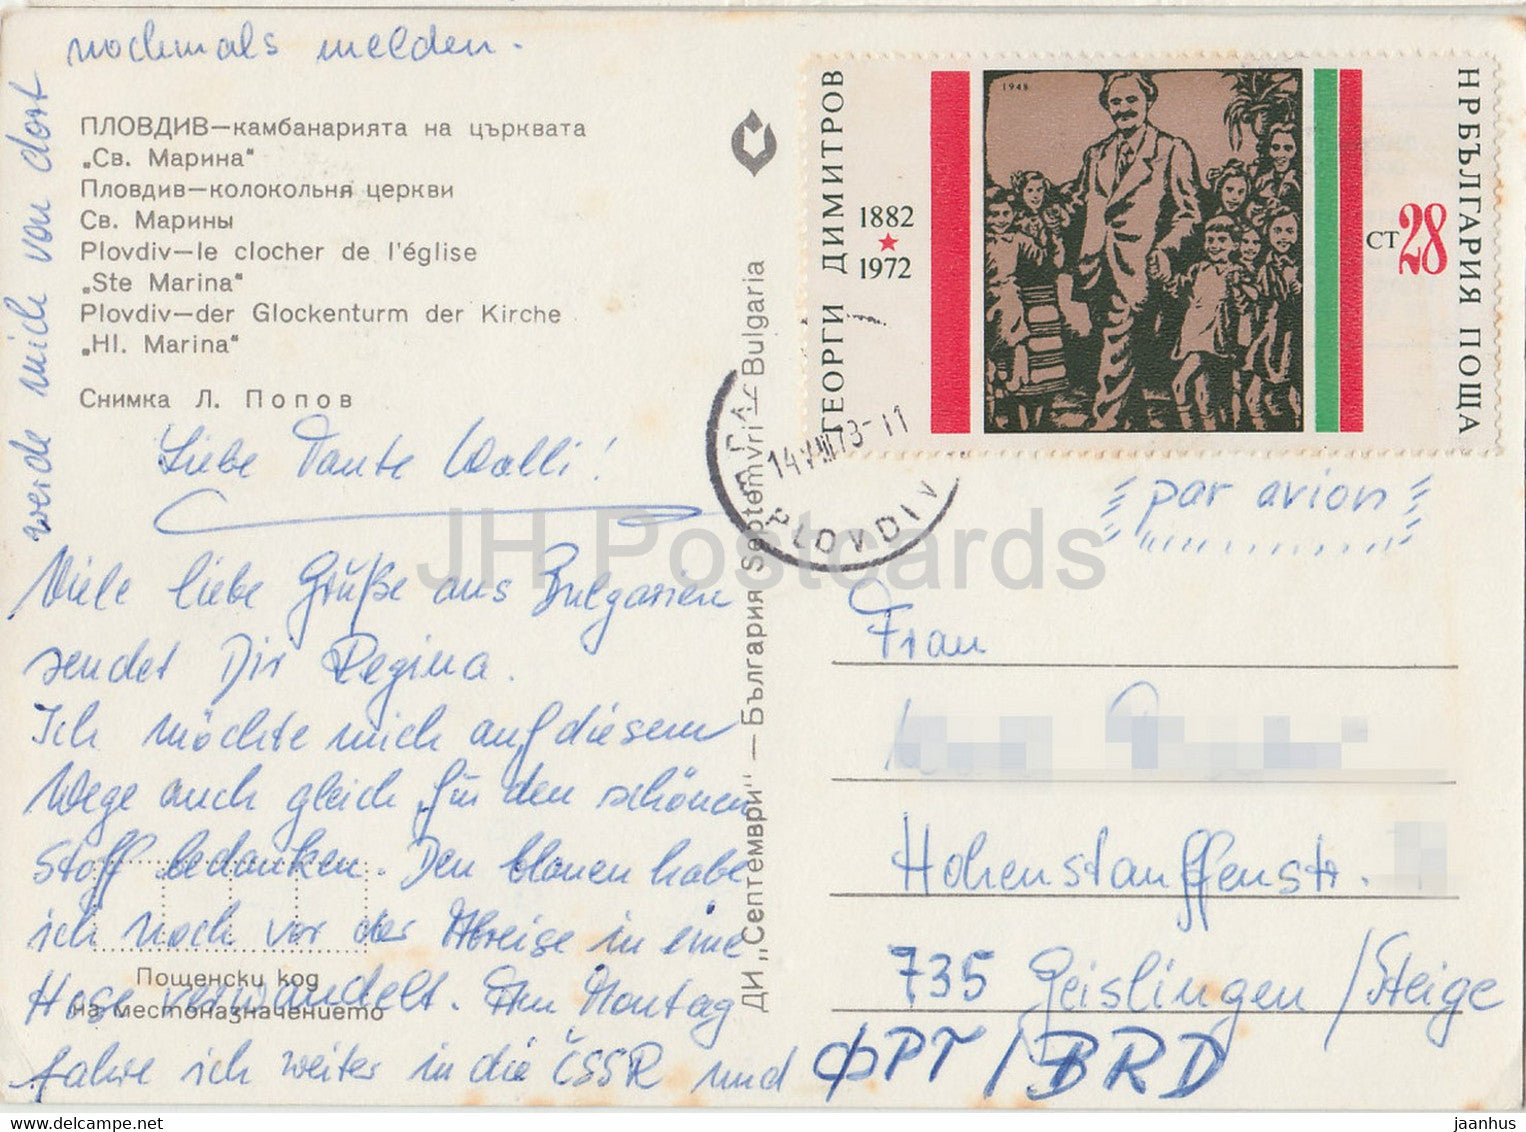 ПЛОВДИВ—камбанарията на църквата
„Св. Марина“
Пловдив—колокольня церкви
Св. Марины
Plovdiv—le clocher de l'église
„Ste Marina“
Plovdiv—der Glockenturm der Kirche
„Hl. Marina“
Снимка Л. Попов
Liebe Tante Walli!
Viele liebe Grüße aus Bulgarien
sendet Dir Regina.
Ich möchte mich auf diesem
Wege auch gleich für den schönen
Stoff bedanken. Den blauen habe
ich noch vor der Abreise in eine
Hose verwandelt. Am Montag
fahre ich weiter in die ČSSR und
werde mich von dort
nochmals melden.
Пощенски код
на местоназначението
ДИ „Септември“ — България Septemvri — Bulgaria
ГЕОРГИ ДИМИТРОВ
1882
1972
1948
СТ 28
НР БЪЛГАРИЯ ПОЩА
14.VIII.73-11
PLOVDIV
par avion
Frau
Hohenstauffenstr.
735 Geislingen/Steige
ФРГ / BRD
JH Postcards
Delcampe.net
jaanhus